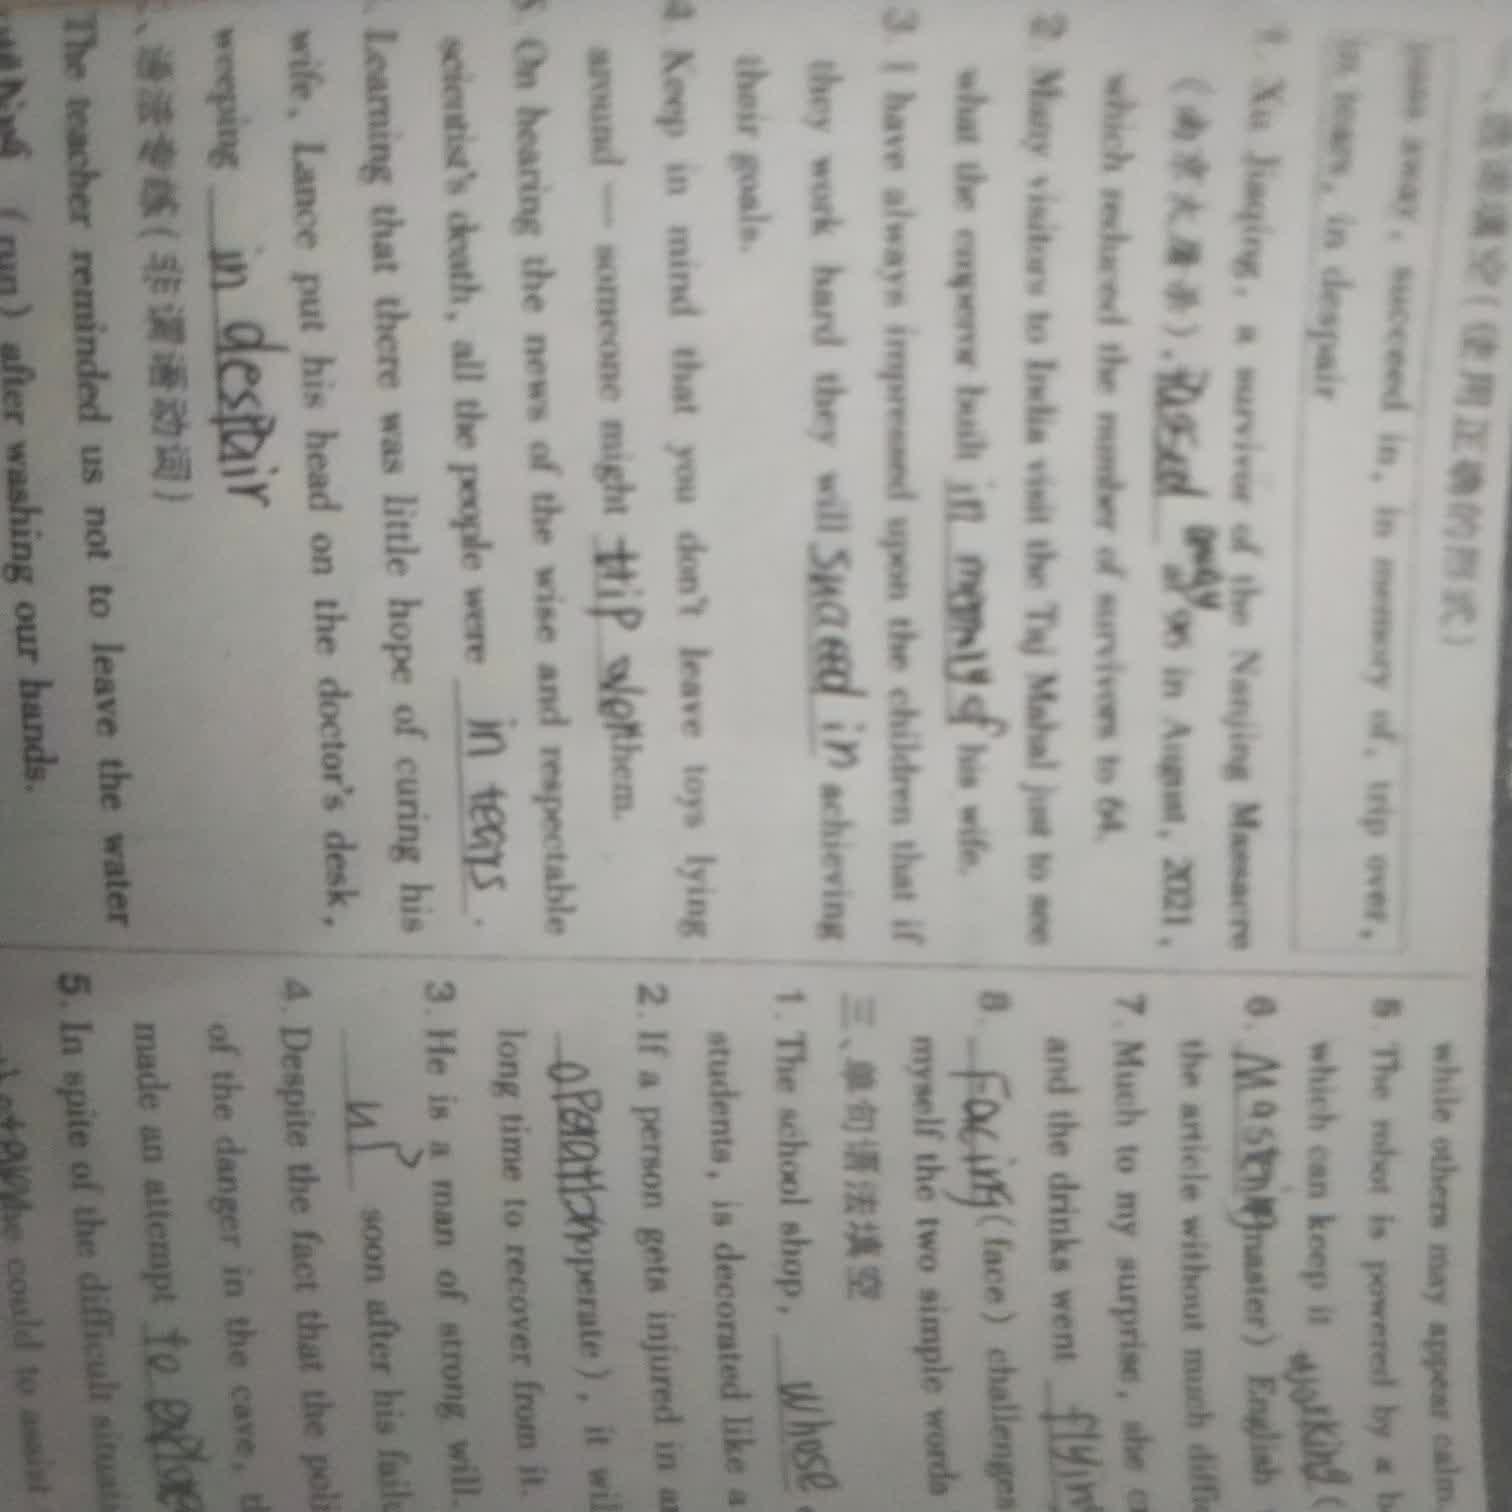 一、短语填空(使用正确的形式)
pass away, succeed in, in memory of, trip over,
in tears, in despair
1. Xia Jiaqing, a survivor of the Nanjing Massacre
(南京大屠杀), passed away at 96 in August, 2021,
which reduced the number of survivors to 64.
2. Many visitors to India visit the Taj Mahal just to see
what the emperor built in memory of his wife.
3. I have always impressed upon the children that if
they work hard they will succeed in achieving
their goals.
4. Keep in mind that you don't leave toys lying
around — someone might trip over them.
5. On hearing the news of the wise and respectable
scientist's death, all the people were in tears.
Learning that there was little hope of curing his
wife, Lance put his head on the doctor's desk,
weeping in despair
、语法专练(非谓语动词)
The teacher reminded us not to leave the water
(run) after washing our hands.
while others may appear calm
5. The robot is powered by a
which can keep it working
6. Mastering (master) English
the article without much
7. Much to my surprise, she
and the drinks went
8. Facing (face) challenges
myself the two simple words
三、单句语法填空
1. The school shop, whose
students, is decorated like a
2. If a person gets injured in
operation (operate), it
long time to recover from it.
3. He is a man of strong will.
soon after his
4. Despite the fact that the
of the danger in the cave,
made an attempt to
5. In spite of the difficult
he could to assist